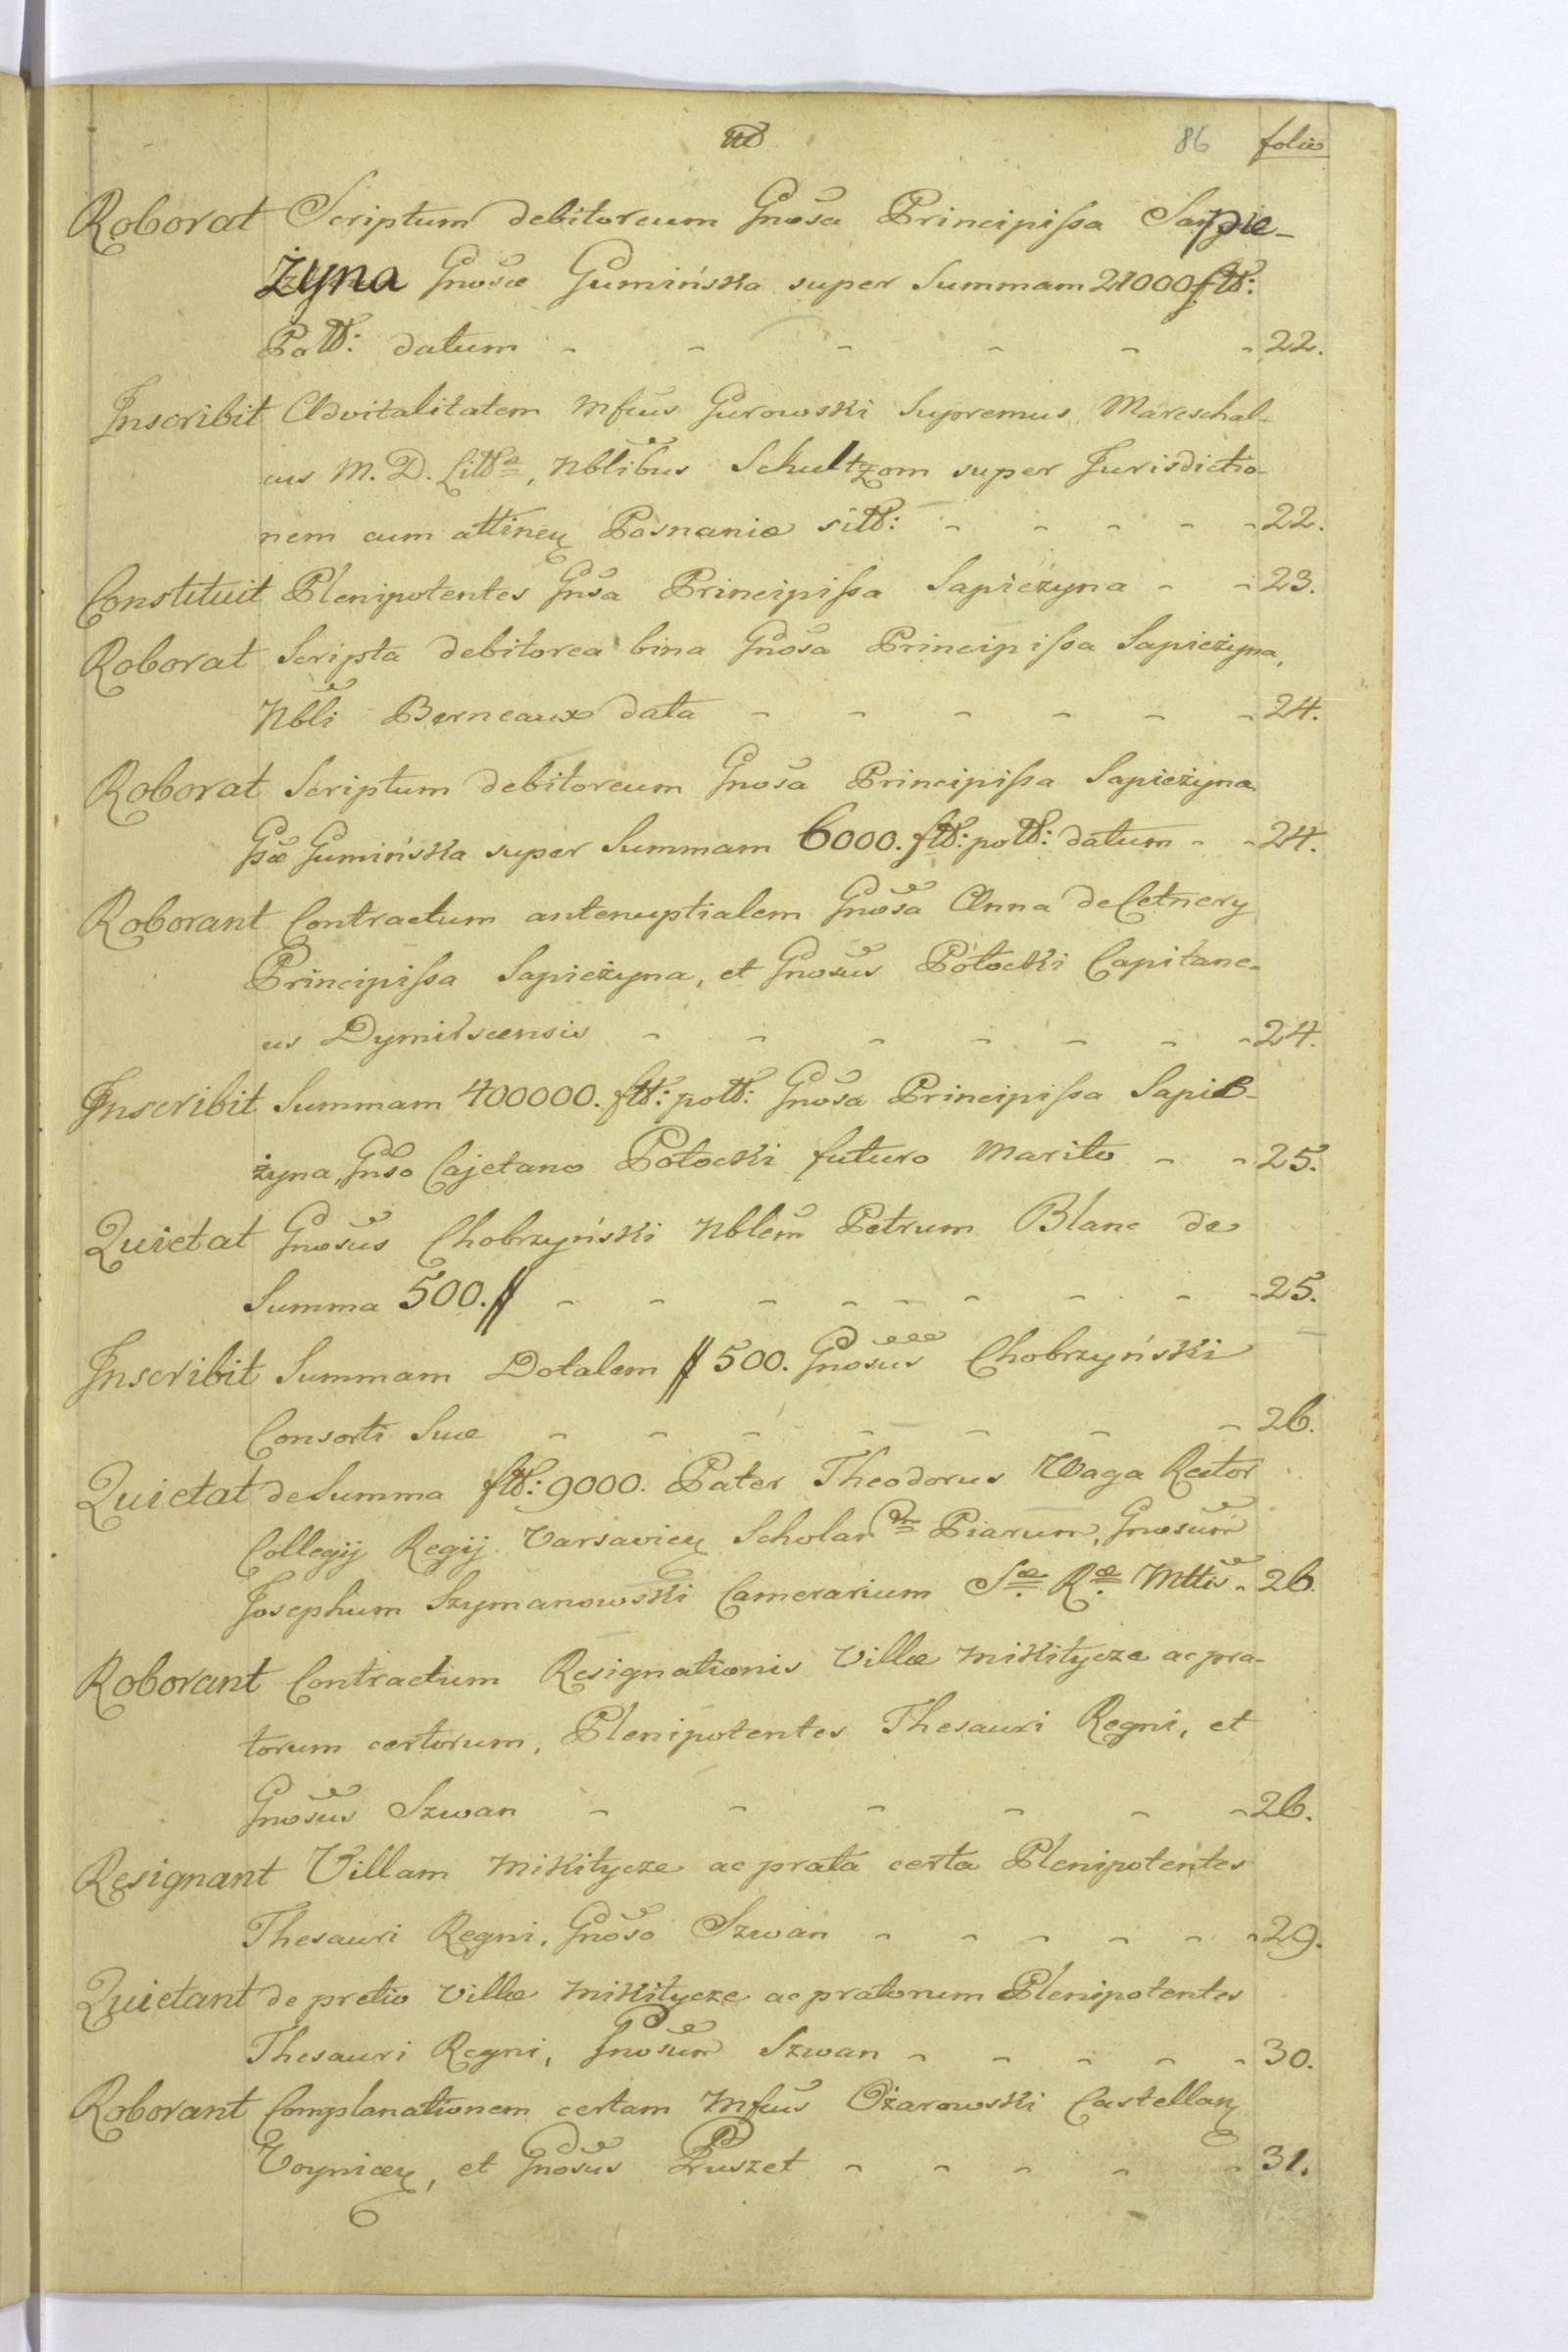 86 folio
Roborat Scriptum debitoreum Gnosa Principissa Sapie-
żyna Gnosæ Gumińska super Summam 21000 fltt:
Poltt: datum - - - - - - 22.
Inscribit Advitalitatem Mfcus Gurowski Supremus Mareschal-
cus M. D. Littæ, Nblibus Schultzom super Jurisdictio-
nem cum attinen Posnaniæ sitt: - - - - - 22.
Constituit Plenipotentes Gnsa Principissa Sapieżyna - - 23.
Roborat Scripta debitorea bina Gnosa Principissa Sapieżyna,
Nbli Berneaux data - - - - - - 24.
Roborat Scriptum debitoreum Gnosa Principissa Sapieżyna
Gsæ Gumińska super Summam 6000. fltt: poltt: datum - - 24.
Roborant Contractum antenuptialem Gnosa Anna de Cetnery
Principissa Sapieżyna, et Gnosus Potocki Capitane-
us Dymirscensis - - - - - - - 24.
Inscribit Summam 400000. fltt: poltt: Gnosa Principissa Sapie-
żyna, Gnso Cajetano Potocki futuro Marito - - 25.
Quietat Gnosus Chobrzyński Nblem Petrum Blanc de
Summa 500. # - - - - - - - - - 25.
Inscribit Summam Dotalem # 500. Gnosus Chobrzyński
Consorti Suæ - - - - - - - 26.
Quietat de Summa fltt: 9000. Pater Theodorus Waga Rector
Collegij Regij Varsavien Scholarum Piarum, Gnosum
Josephum Szymanowski Camerarium Sæ. Ræ. Mttis - 26.
Roborant Contractum Resignationis Villæ Mikitycze ac pra-
torum certorum, Plenipotentes Thesauri Regni, et
Gnosus Szwan - - - - - - 26.
Resignant Villam Mikitycze ac prata certa Plenipotentes
Thesauri Regni, Gnoso Szwan - - - - - - 29.
Quietant de pretio Villæ Mikitycze ac pratorum Plenipotentes
Thesauri Regni, Gnosum Szwan - - - - - 30.
Roborant Complanationem certam Mfcus Ożarowski Castellan
Voynicen, et Gnosus Puszet - - - - - 31.